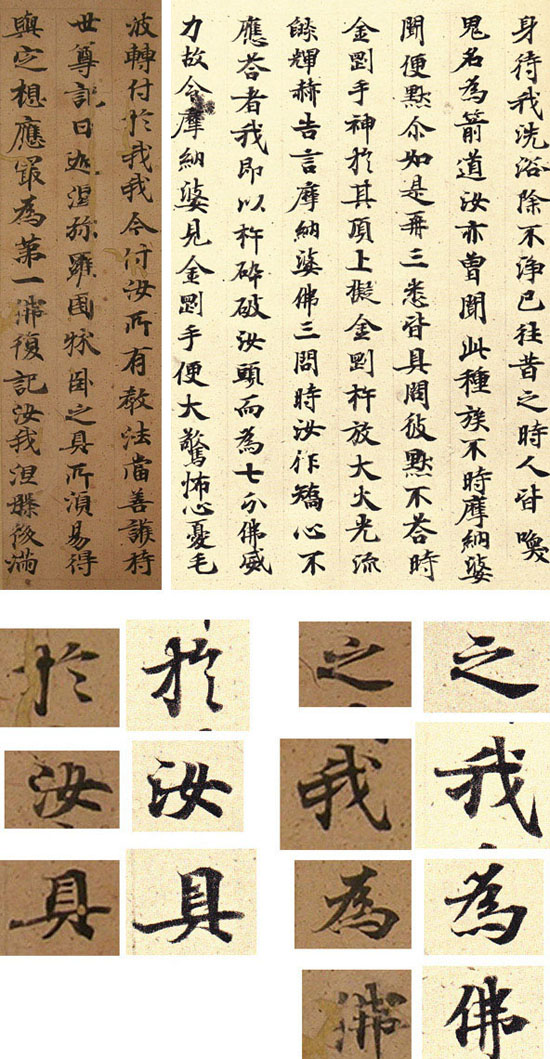 身待我洗浴除不淨已往昔之時人皆喚
鬼名為箭道汝亦曾聞此種族不時摩納婆
聞便默尒如是再三悉皆具問彼默不荅時
金剛手神於其頂上擬金剛杵放大火光流
輝赫告言摩納婆佛三問時汝作矯心不
應荅者我即以杵碎破汝頭而為七分佛威
力故令摩納婆見金剛手便大驚怖心憂毛
波轉付於我我今付汝所有教法當善護持
世尊記曰迦濕彌羅國牀卧之具所須易得
與定想應冣為第一佛復記汝我涅槃後滿
於 於
汝 汝
具 具
之 之
我 我
為 為
佛 佛